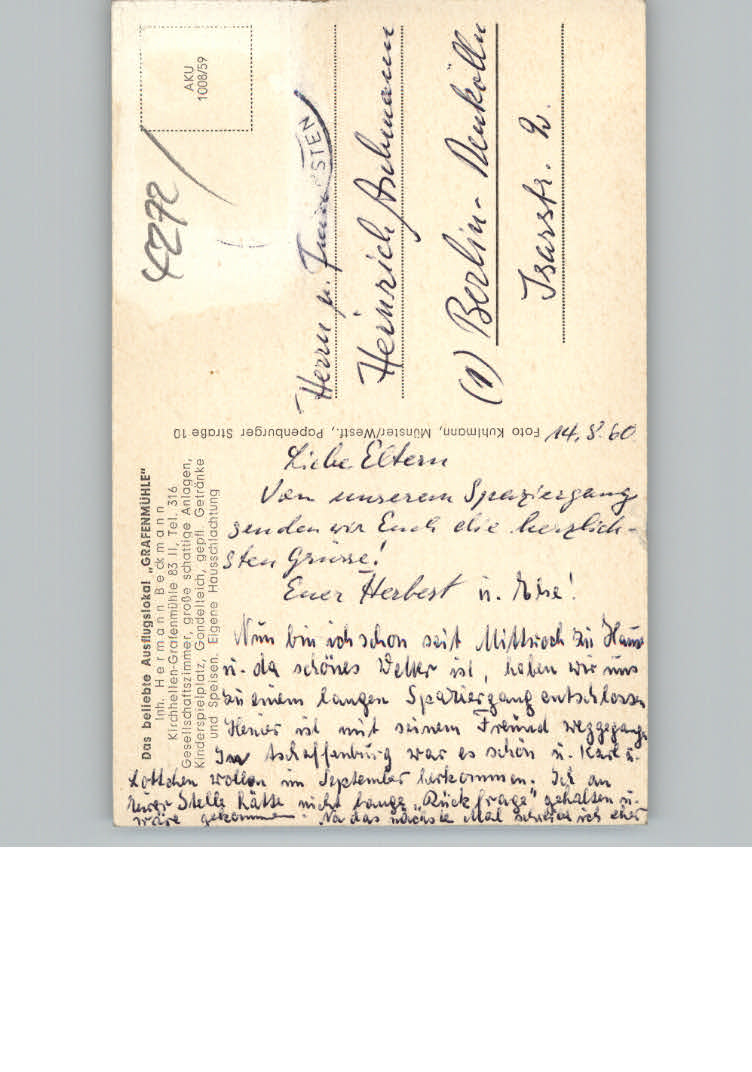 AKU
1008/59
4272
STEN
Herrn u. Frau
Heinrich Aschmann
(1) Berlin-Neukölln
Isarstr. 2.
Das beliebte Ausflugslokal „GRAFENMÜHLE"
Inh. Hermann Beckmann
Kirchhellen-Grafenmühle 83 II, Tel. 316
Gesellschaftszimmer, große schattige Anlagen,
Kinderspielplatz, Gondelteich, gepfl. Getränke
und Speisen. Eigene Hausschlachtung
Foto Kuhlmann, Münster/Westf., Papenburger Straße 10
14.8.60
Liebe Eltern
Von unserem Spaziergang
senden wir Euch die herzlich-
sten Grüsse!
Euer Herbert u. Else!
Nun bin ich schon seit Mittwoch zu Haus
u. da schönes Wetter ist, haben wir uns
zu einem langen Spaziergang entschlossen
Heiner ist mit seinem Freund weggegangen
In Aschaffenburg war es schön u. Karl u.
Lottchen wollen im September herkommen. Ich an
Eurer Stelle hätte nicht lange „Rückfrage" gehalten u.
wäre gekommen. Na das nächste Mal schreibe ich eher